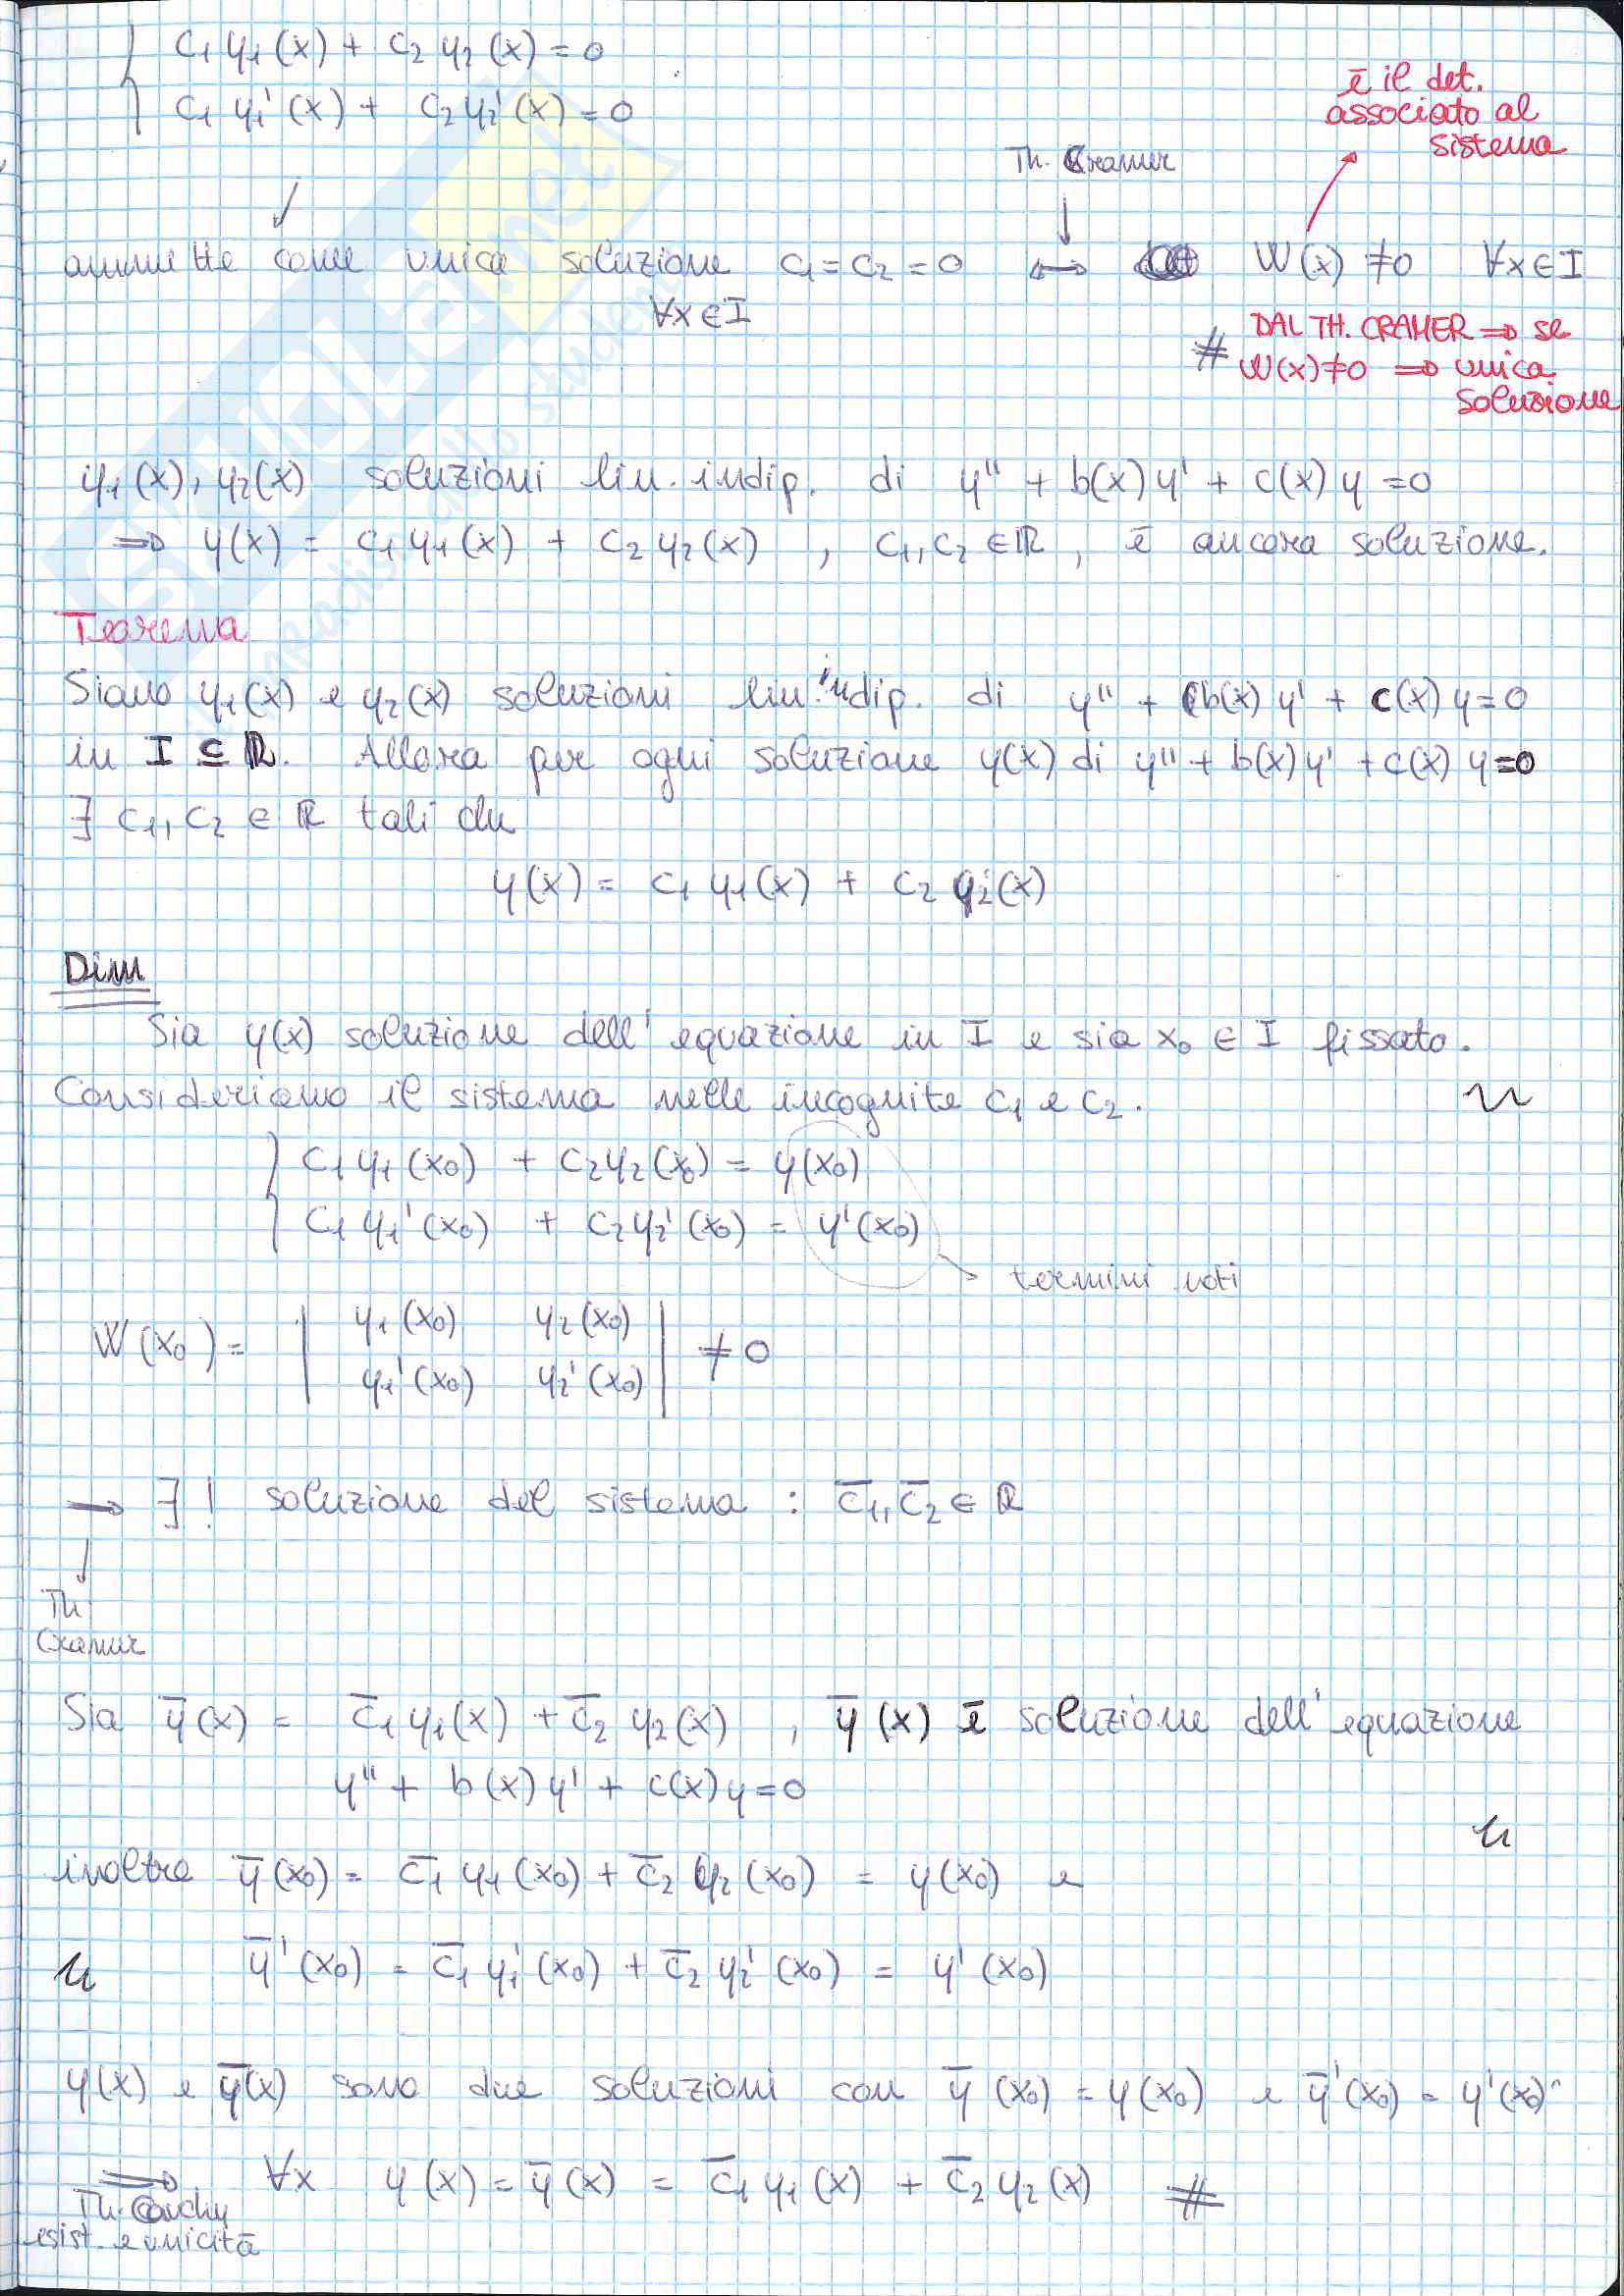 { c₁ y₁(x) + c₂ y₂(x) = 0
c₁ y₁'(x) + c₂ y₂'(x) = 0
è il det.
associato al
sistema
Th. Cramer
ammette come unica soluzione c₁ = c₂ = 0 ↔ W(x) ≠ 0 ∀x∈I
∀x∈I
# DAL TH. CRAMER ⇒ se
W(x) ≠ 0 ⇒ unica
soluzione
y₁(x), y₂(x) soluzioni lin. indip. di y'' + b(x) y' + c(x) y = 0
⇒ y(x) = c₁ y₁(x) + c₂ y₂(x) , c₁, c₂ ∈ ℝ , è ancora soluzione.
Teorema
Siano y₁(x) e y₂(x) soluzioni lin. indip. di y'' + b(x) y' + c(x) y = 0
in I ⊆ ℝ. Allora per ogni soluzione y(x) di y'' + b(x) y' + c(x) y = 0
∃ c₁, c₂ ∈ ℝ tali che
y(x) = c₁ y₁(x) + c₂ y₂(x)
Dim
Sia y(x) soluzione dell'equazione in I e sia x₀ ∈ I fissato.
Consideriamo il sistema nelle incognite c₁ e c₂.
{ c₁ y₁(x₀) + c₂ y₂(x₀) = y(x₀)
c₁ y₁'(x₀) + c₂ y₂'(x₀) = y'(x₀)
termini noti
W(x₀) = | y₁(x₀) y₂(x₀) | ≠ 0
| y₁'(x₀) y₂'(x₀) |
→ ∃! soluzione del sistema : c̅₁, c̅₂ ∈ ℝ
Th.
Cramer
Sia y̅(x) = c̅₁ y₁(x) + c̅₂ y₂(x) , y̅(x) è soluzione dell'equazione
y'' + b(x) y' + c(x) y = 0
inoltre y̅(x₀) = c̅₁ y₁(x₀) + c̅₂ y₂(x₀) = y(x₀) e
y̅'(x₀) = c̅₁ y₁'(x₀) + c̅₂ y₂'(x₀) = y'(x₀)
y(x) e y̅(x) sono due soluzioni con y̅(x₀) = y(x₀) e y̅'(x₀) = y'(x₀)
⇒ ∀x y(x) = y̅(x) = c̅₁ y₁(x) + c̅₂ y₂(x) #
Th. Cauchy
esist. e unicità